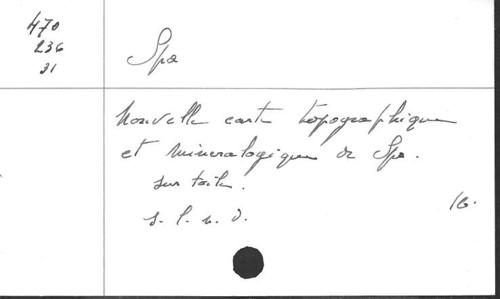 470
236
31
Spa
Nouvelle carte topographique
et mineralogique de Spa.
sur toile.
s. l. n. d.